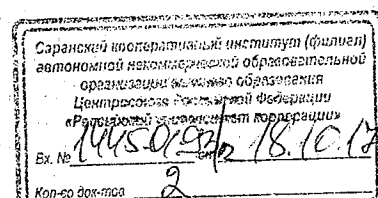 Саранский кооперативный институт (филиал)
автономной некоммерческой образовательной
организации высшего образования
Центросоюза Российской Федерации
«Российский университет кооперации»
Вх. № 18.10.17
Кол-во док-тов 2